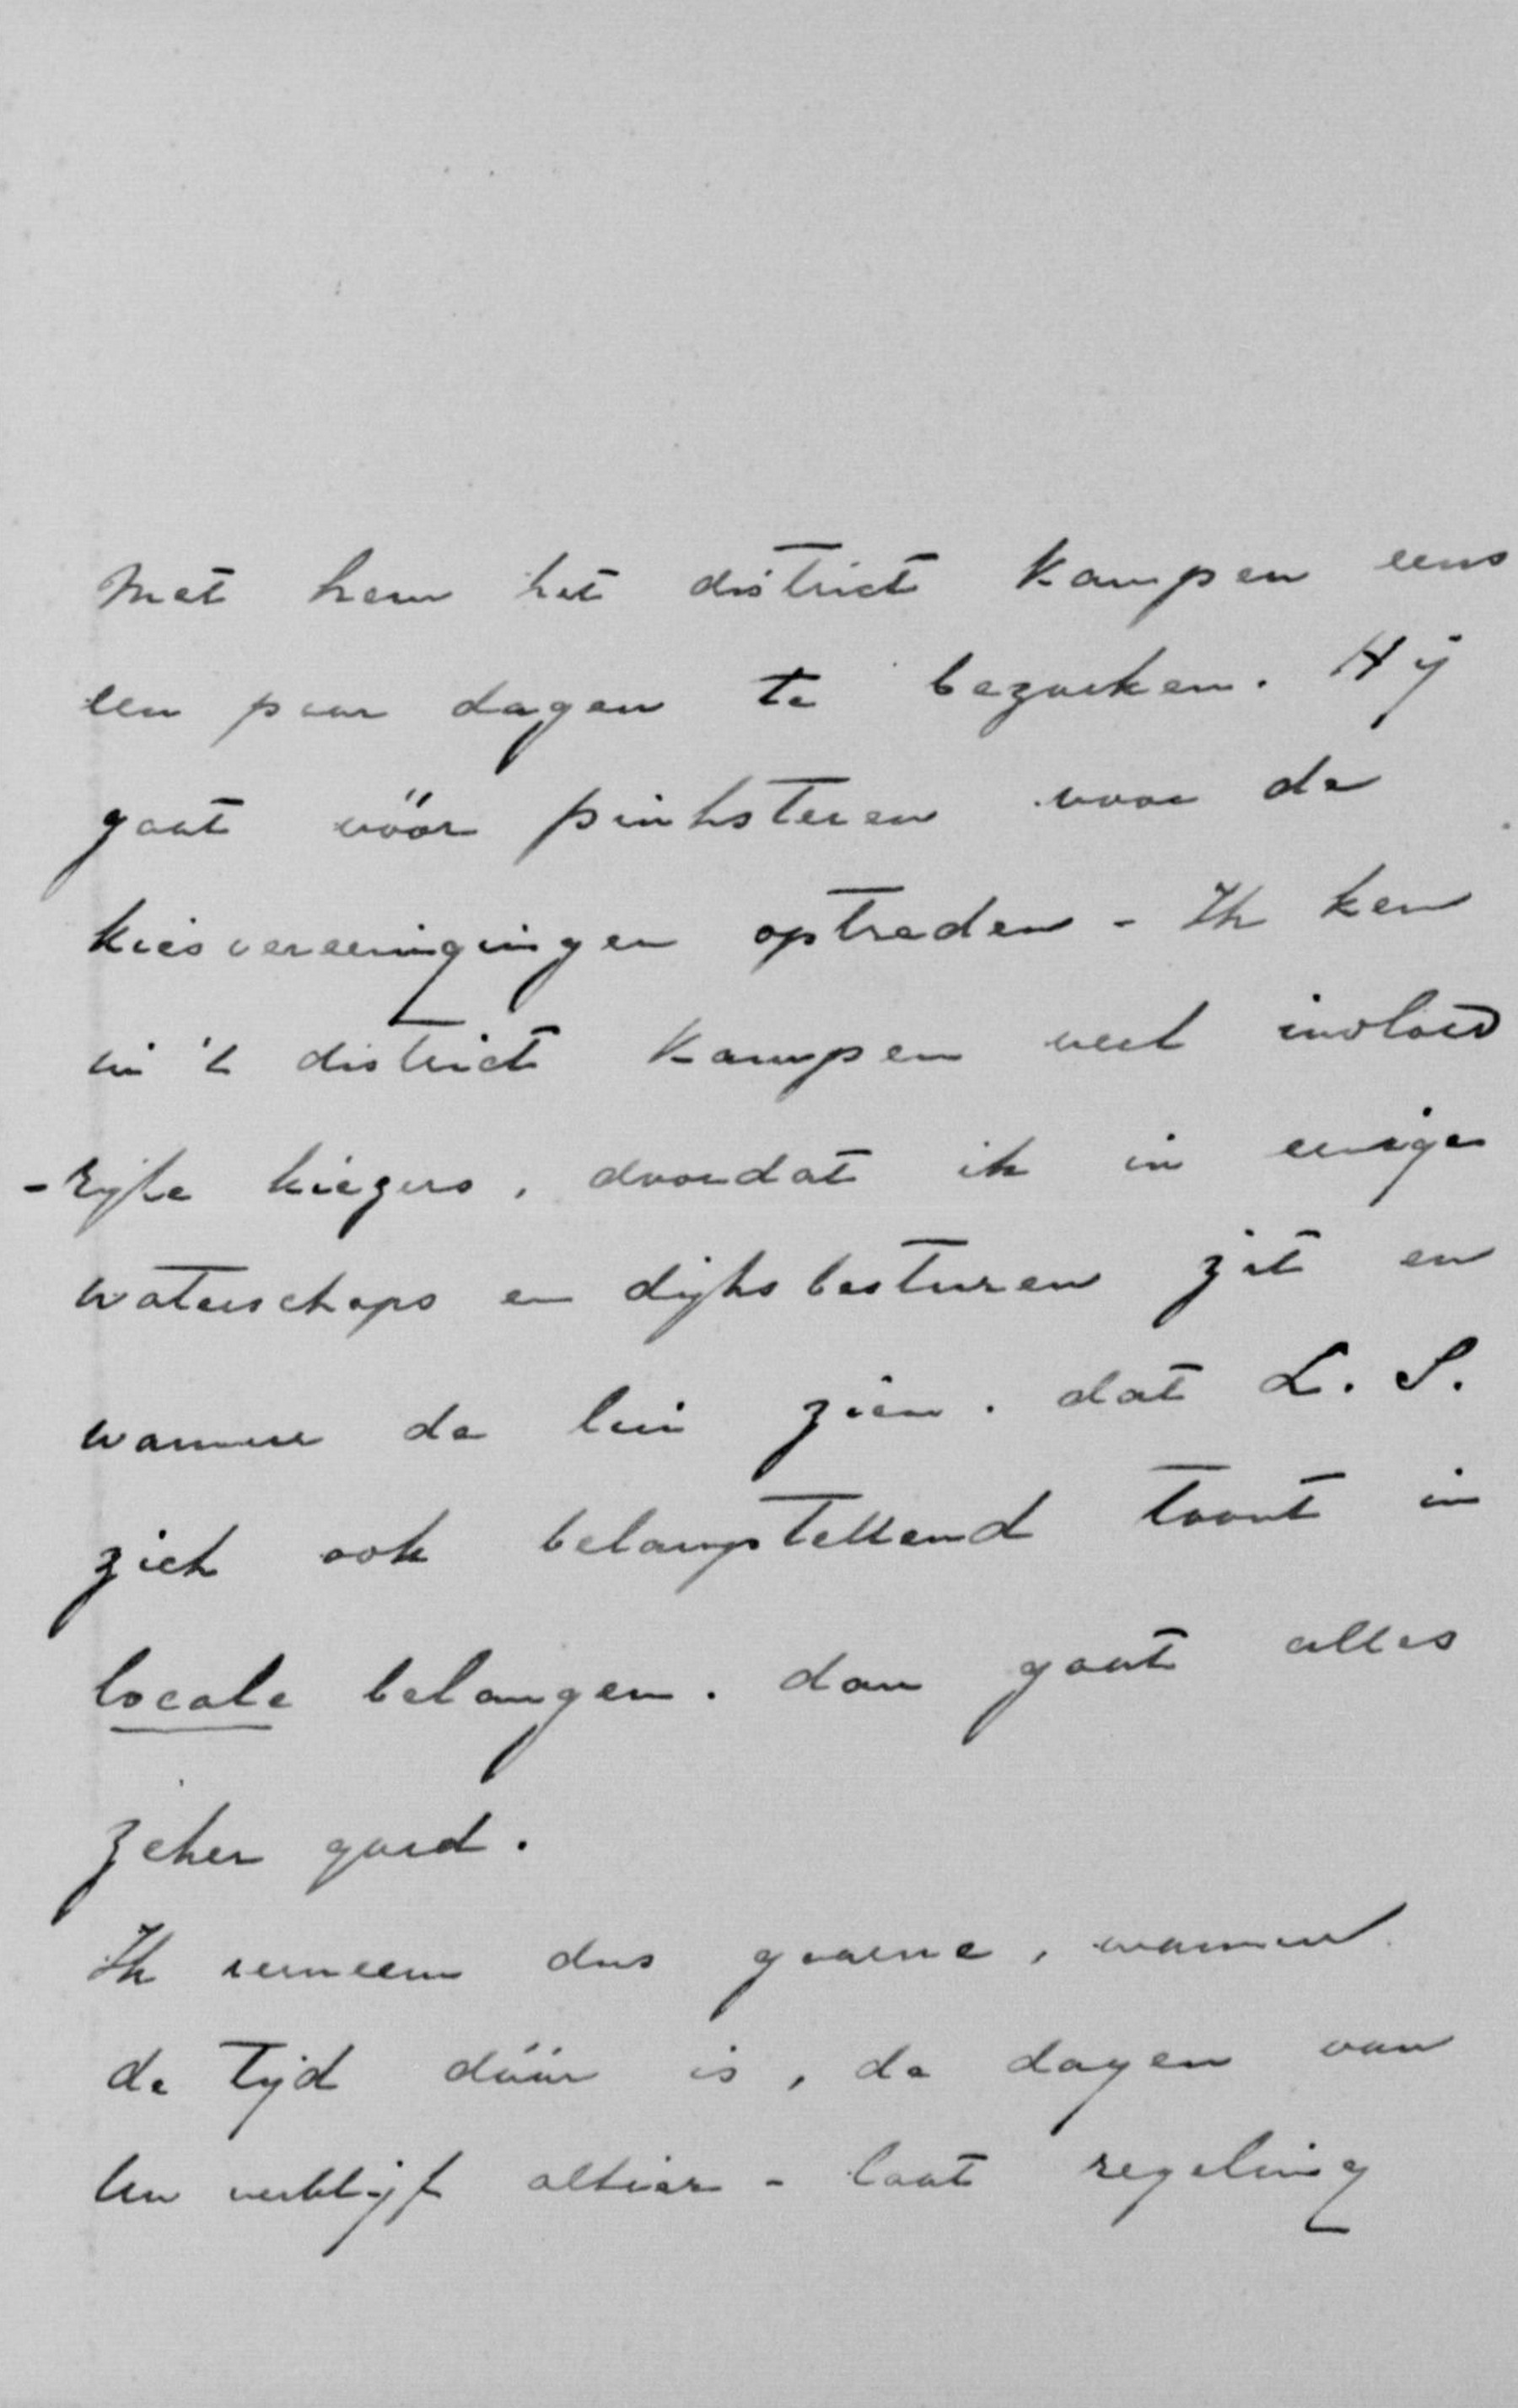 met hem het district Kampen eens
een paar dagen te bezoeken. Hij
gaat vóór pinksteren voor de
kiesvereenigingen optreden - Ik ken
in 't district Kampen veel invloed
-rijke kiezers, doordat ik in eenige
waterschaps en dijksbesturen zit en
wanneer de lui zien. dat L. S.
zich ook belangstellend toont in
locale belangen. dan gaat alles
zeker goed.
Ik verneem dus gaarne, wanneer
de tijd dáár is, de dagen van
Uw verblijf alhier - laat regeling